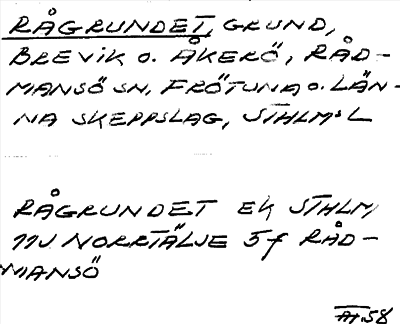 RÅGRUNDET, GRUND,
BREVIK O. ÅKERÖ, RÅD-
MANSÖ SN, FRÖTUNA O. LÄN-
NA SKEPPSLAG, STHLMS L
RÅGRUNDET EK STHLM
11J NORRTÄLJE 5f RÅD-
MANSÖ
58